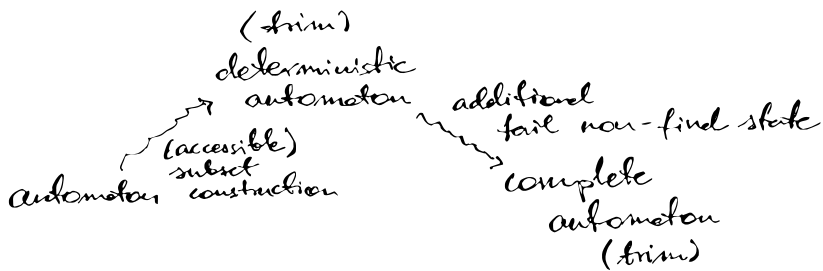 (trim)
deterministic
automaton
additional
fail non-final state
(accessible)
subset
automaton construction
complete
automaton
(trim)